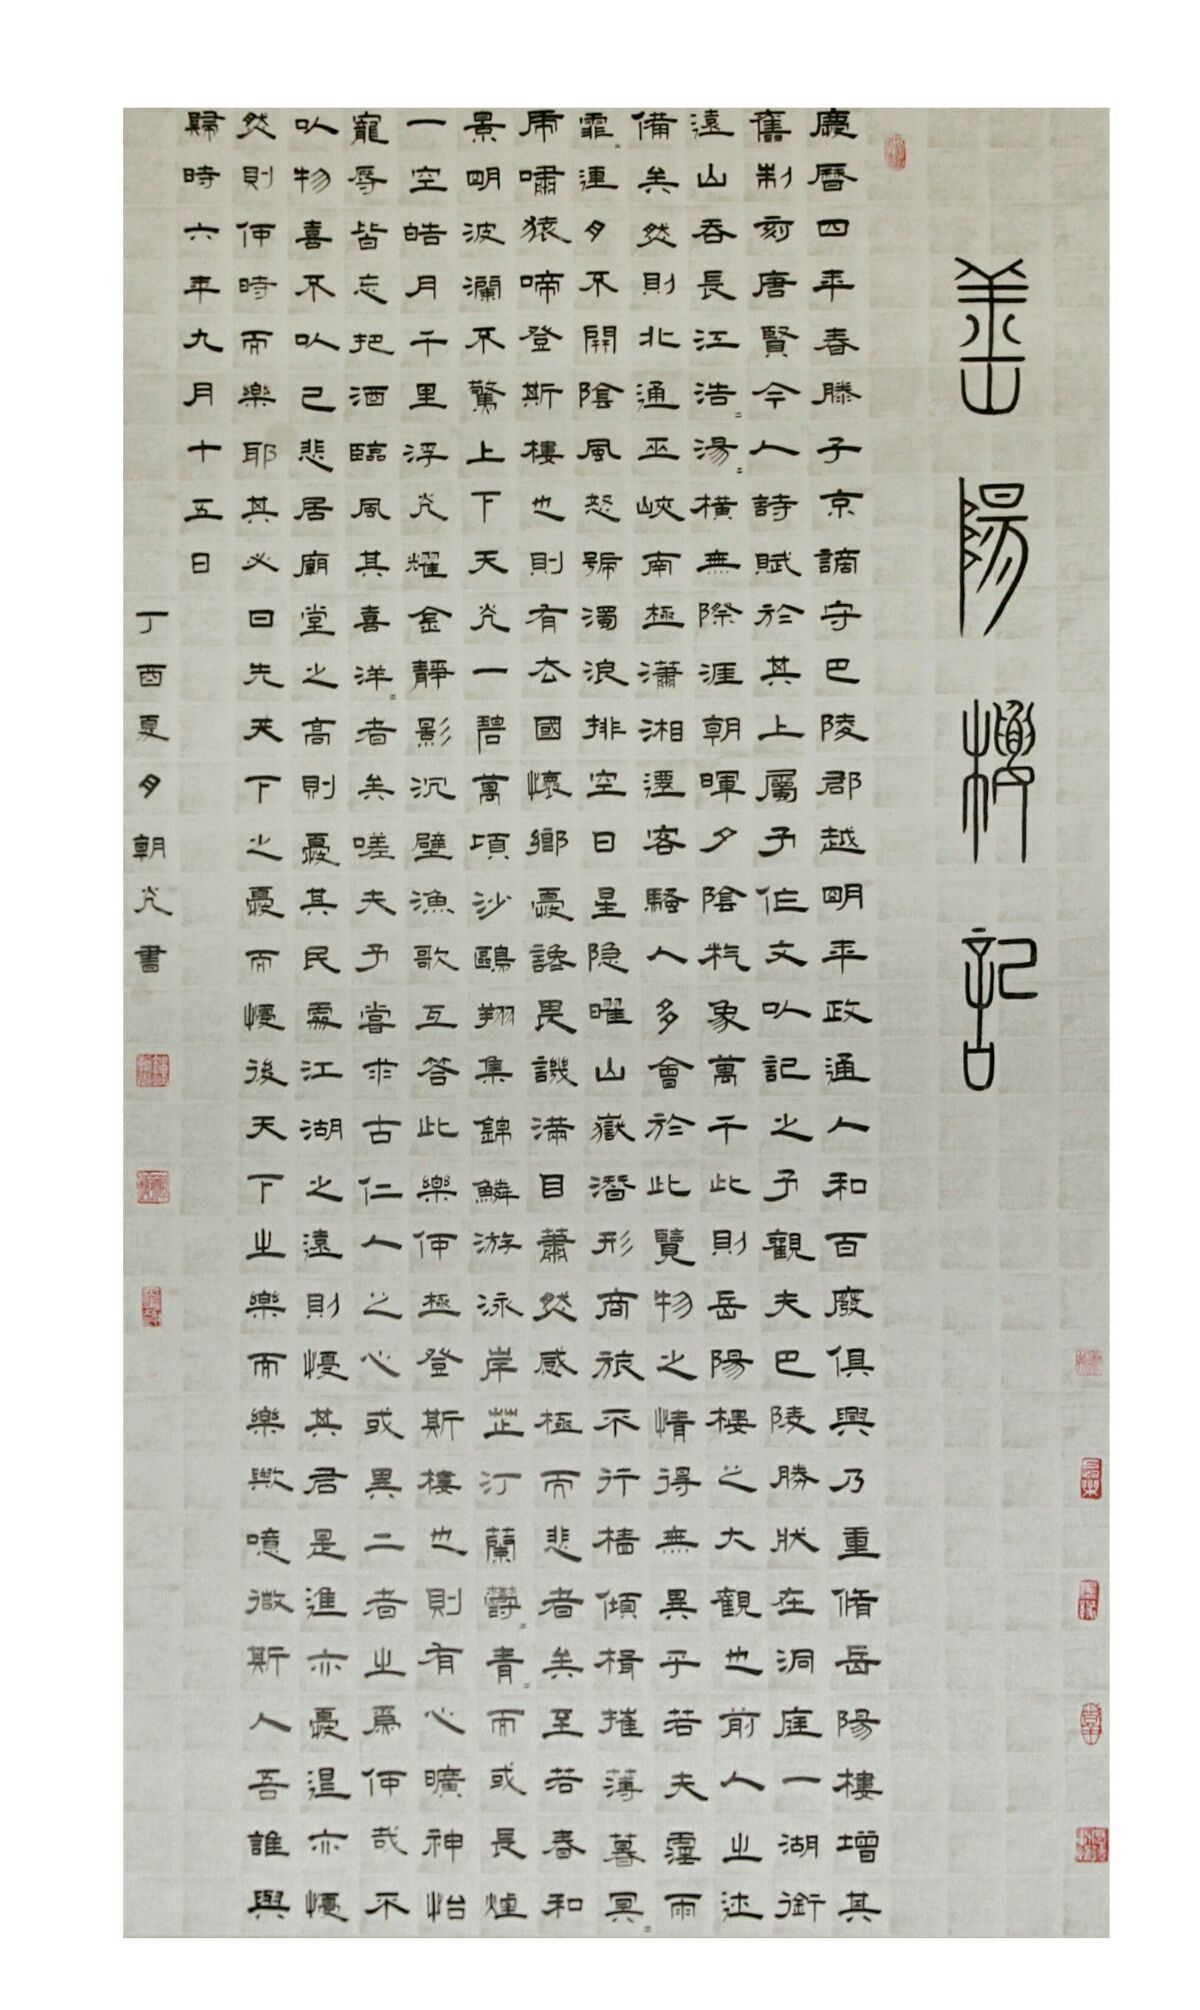 岳陽樓記
慶曆四年春滕子京謫守巴陵郡越明年政通人和百廢俱興乃重脩岳陽樓增其
舊制刻唐賢今人詩賦於其上屬予作文以記之予觀夫巴陵勝狀在洞庭一湖銜
遠山吞長江浩〻湯〻橫無際涯朝暉夕陰氣象萬千此則岳陽樓之大觀也前人之述
備矣然則北通巫峽南極瀟湘遷客騷人多會於此覽物之情得無異乎若夫霪雨
霏〻連月不開陰風怒號濁浪排空日星隱曜山嶽潛形商旅不行檣傾楫摧薄暮冥〻
虎嘯猿啼登斯樓也則有去國懷鄉憂讒畏譏滿目蕭然感極而悲者矣至若春和
景明波瀾不驚上下天光一碧萬頃沙鷗翔集錦鱗游泳岸芷汀蘭鬱〻青〻而或長煙
一空皓月千里浮光耀金靜影沉璧漁歌互答此樂何極登斯樓也則有心曠神怡
寵辱皆忘把酒臨風其喜洋〻者矣嗟夫予嘗求古仁人之心或異二者之為何哉不
以物喜不以己悲居廟堂之高則憂其民處江湖之遠則憂其君是進亦憂退亦憂
然則何時而樂耶其必曰先天下之憂而憂後天下之樂而樂歟噫微斯人吾誰與
歸時六年九月十五日
丁酉夏月朝光書